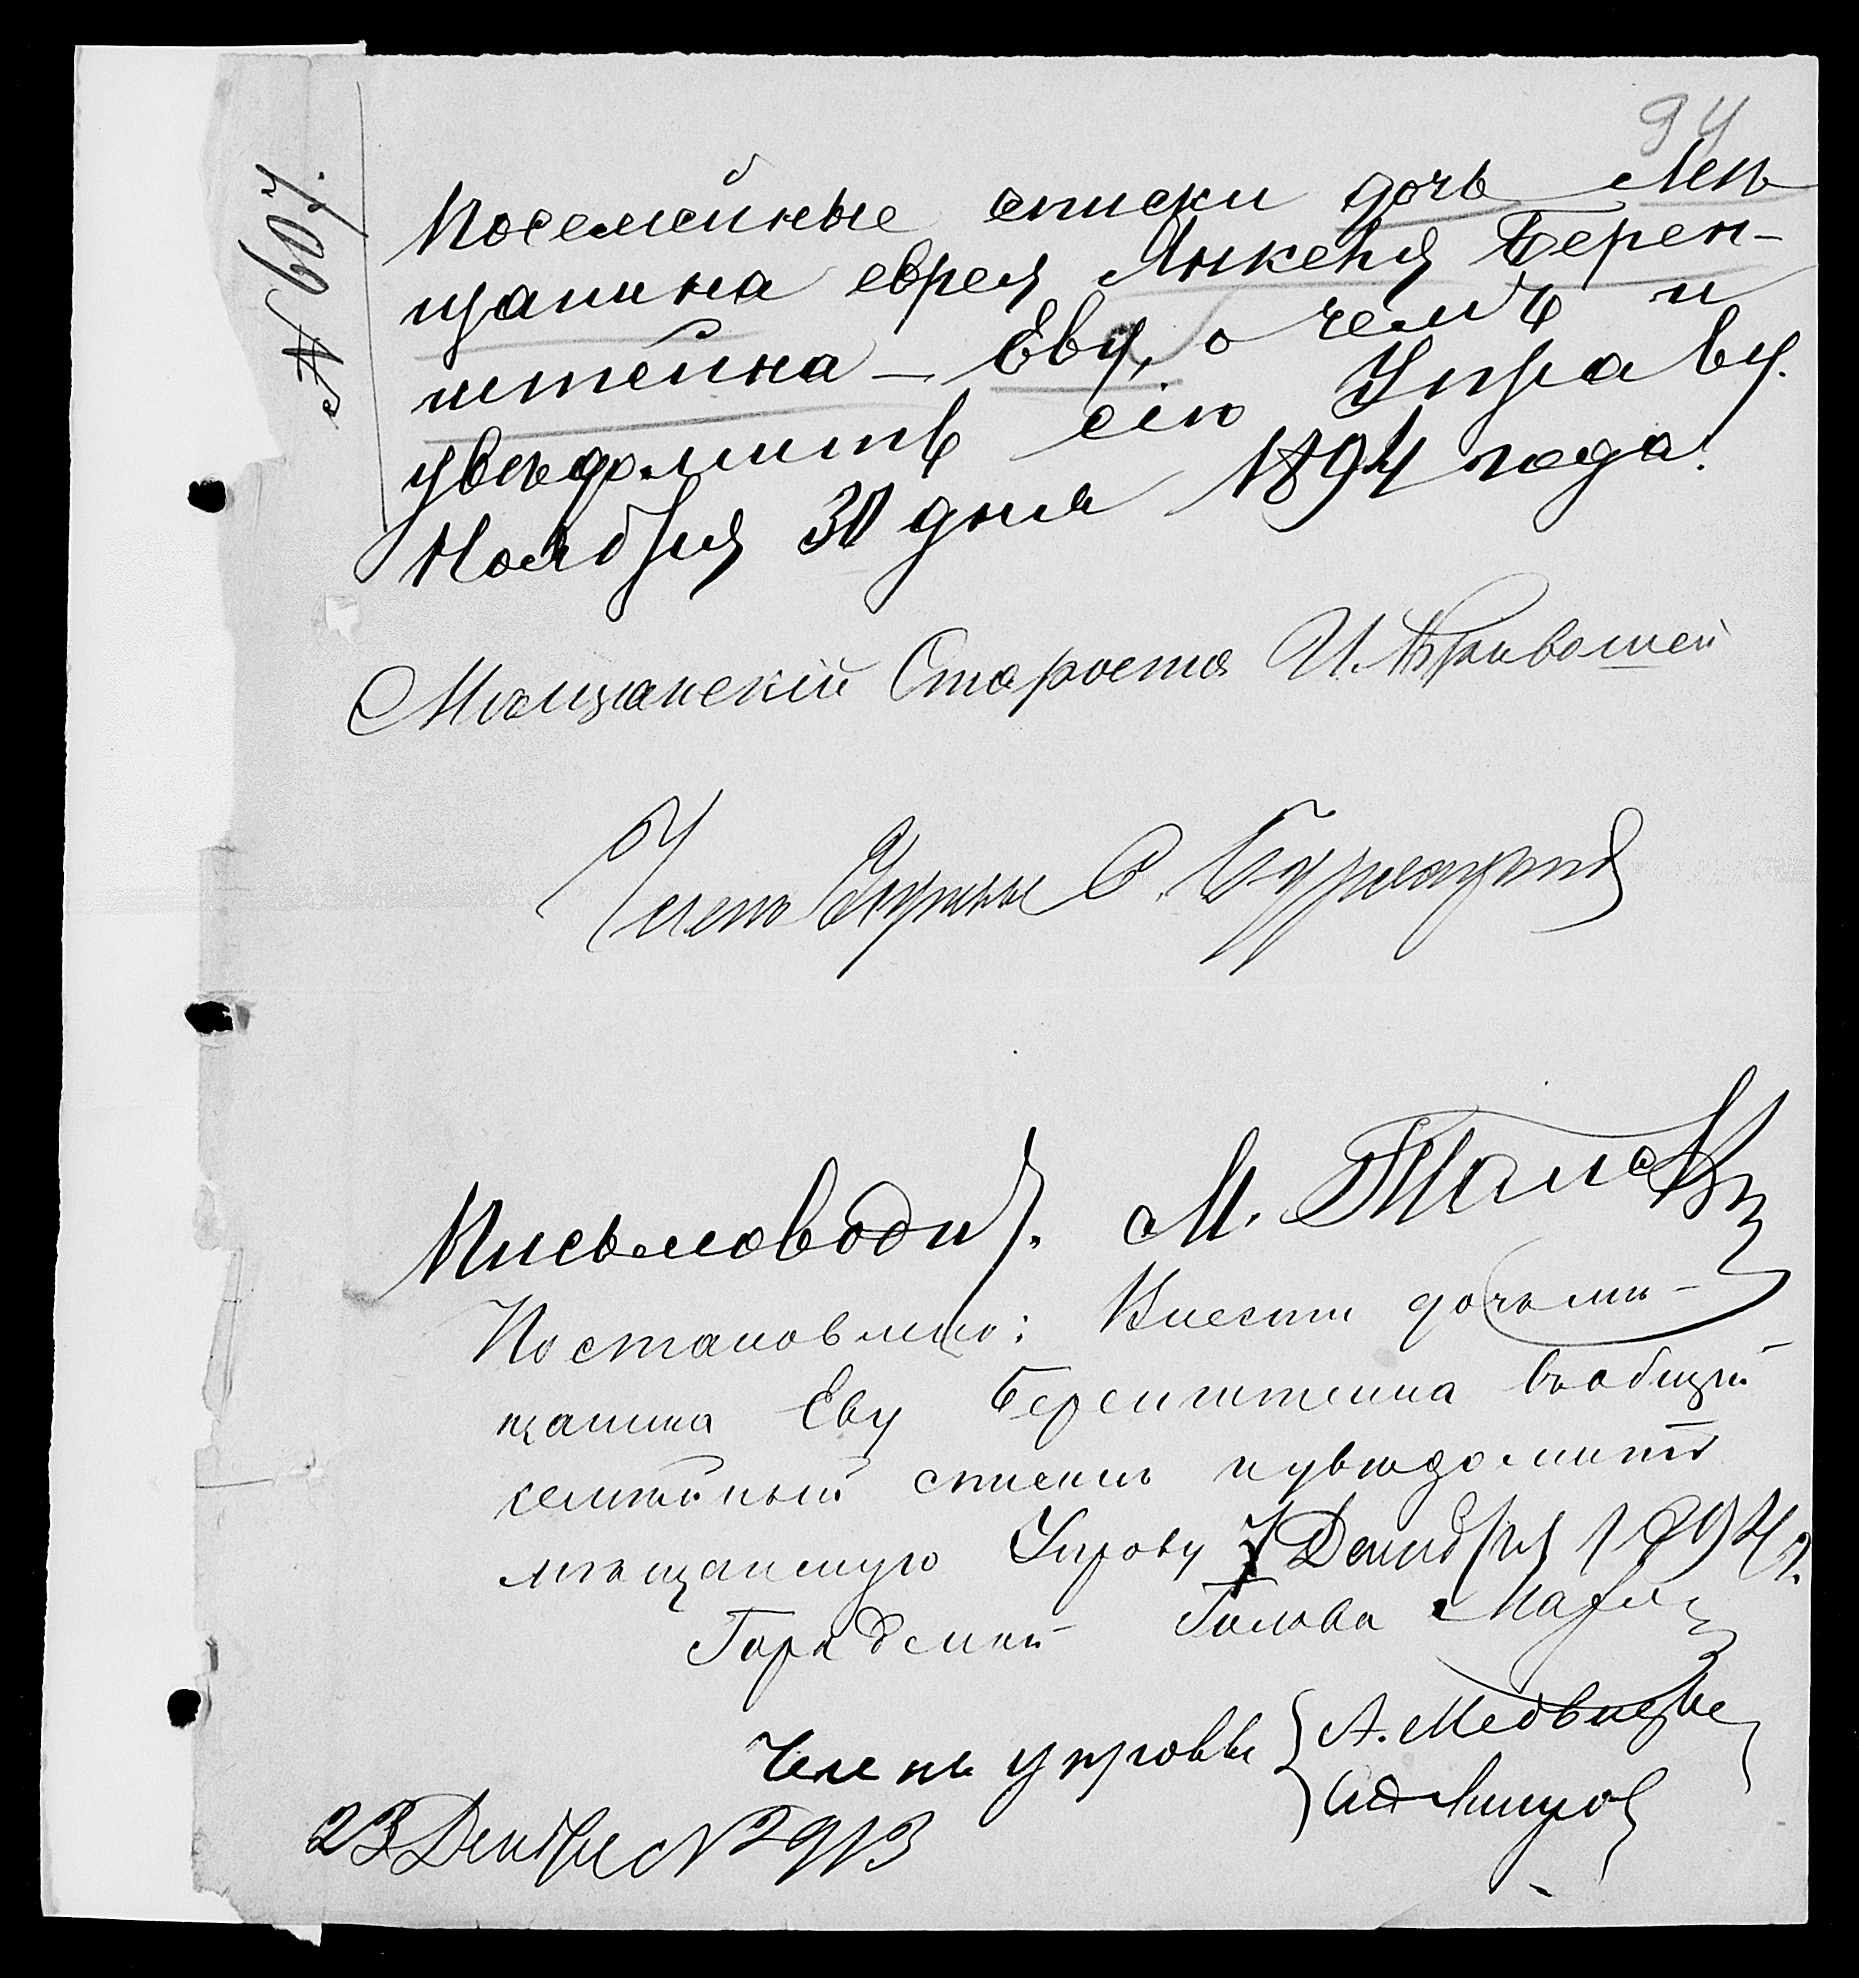 94
№ 607.
Посемейные списки дочь Мѣ
щанина еврея Янкеля Берен-
штейна — Еву, о чемъ и
увѣдомить сію Управу.
Ноября 30 дня 1894 года.
Мѣщанскій Староста И. Кривошей
Членъ Управы С.
Письмоводит. М.
Постановлено: Внести дочь мѣ-
щанина Еву Беренштейна въ общій
семейный списокъ и увѣдомить
мѣщанскую Управу 7 Декабря 1894 г.
Городской Голова
Члены управы А. Медвѣдевъ
23 Декабря № 2913